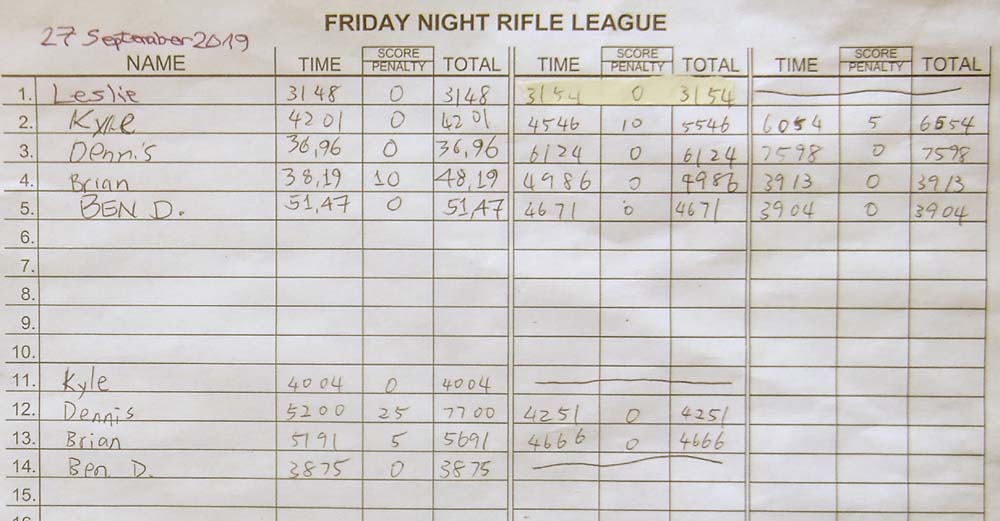 FRIDAY NIGHT RIFLE LEAGUE
27 September 2019
NAME TIME SCORE PENALTY TOTAL TIME SCORE PENALTY TOTAL TIME SCORE PENALTY TOTAL
1. Leslie 3148 0 3148 3154 0 3154
2. Kyle 4201 0 4201 4546 10 5546 6054 5 6554
3. Dennis 36,96 0 36,96 6124 0 6124 7598 0 7598
4. Brian 38,19 10 48,19 4986 0 4986 3913 0 3913
5. BEN D. 51,47 0 51,47 4671 0 4671 3904 0 3904
6.
7.
8.
9.
10.
11. Kyle 4004 0 4004
12. Dennis 5200 25 7700 4251 0 4251
13. Brian 5191 5 5691 4666 0 4666
14. Ben D. 3875 0 3875
15.